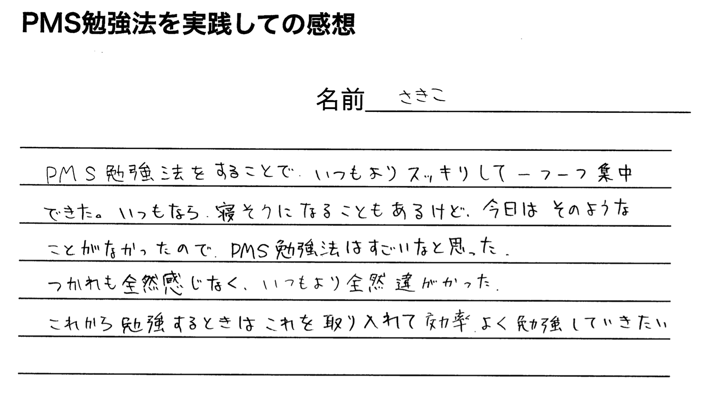 PMS勉強法を実践しての感想
名前 さきこ
PMS勉強法をすることで、いつもよりスッキリして一つ一つ集中
できた。いつもなら、寝そうになることもあるけど、今日はそのような
ことがなかったので、PMS勉強法はすごいなと思った。
つかれも全然感じなく、いつもより全然違がかった。
これから勉強するときはこれを取り入れて効率よく勉強していきたい